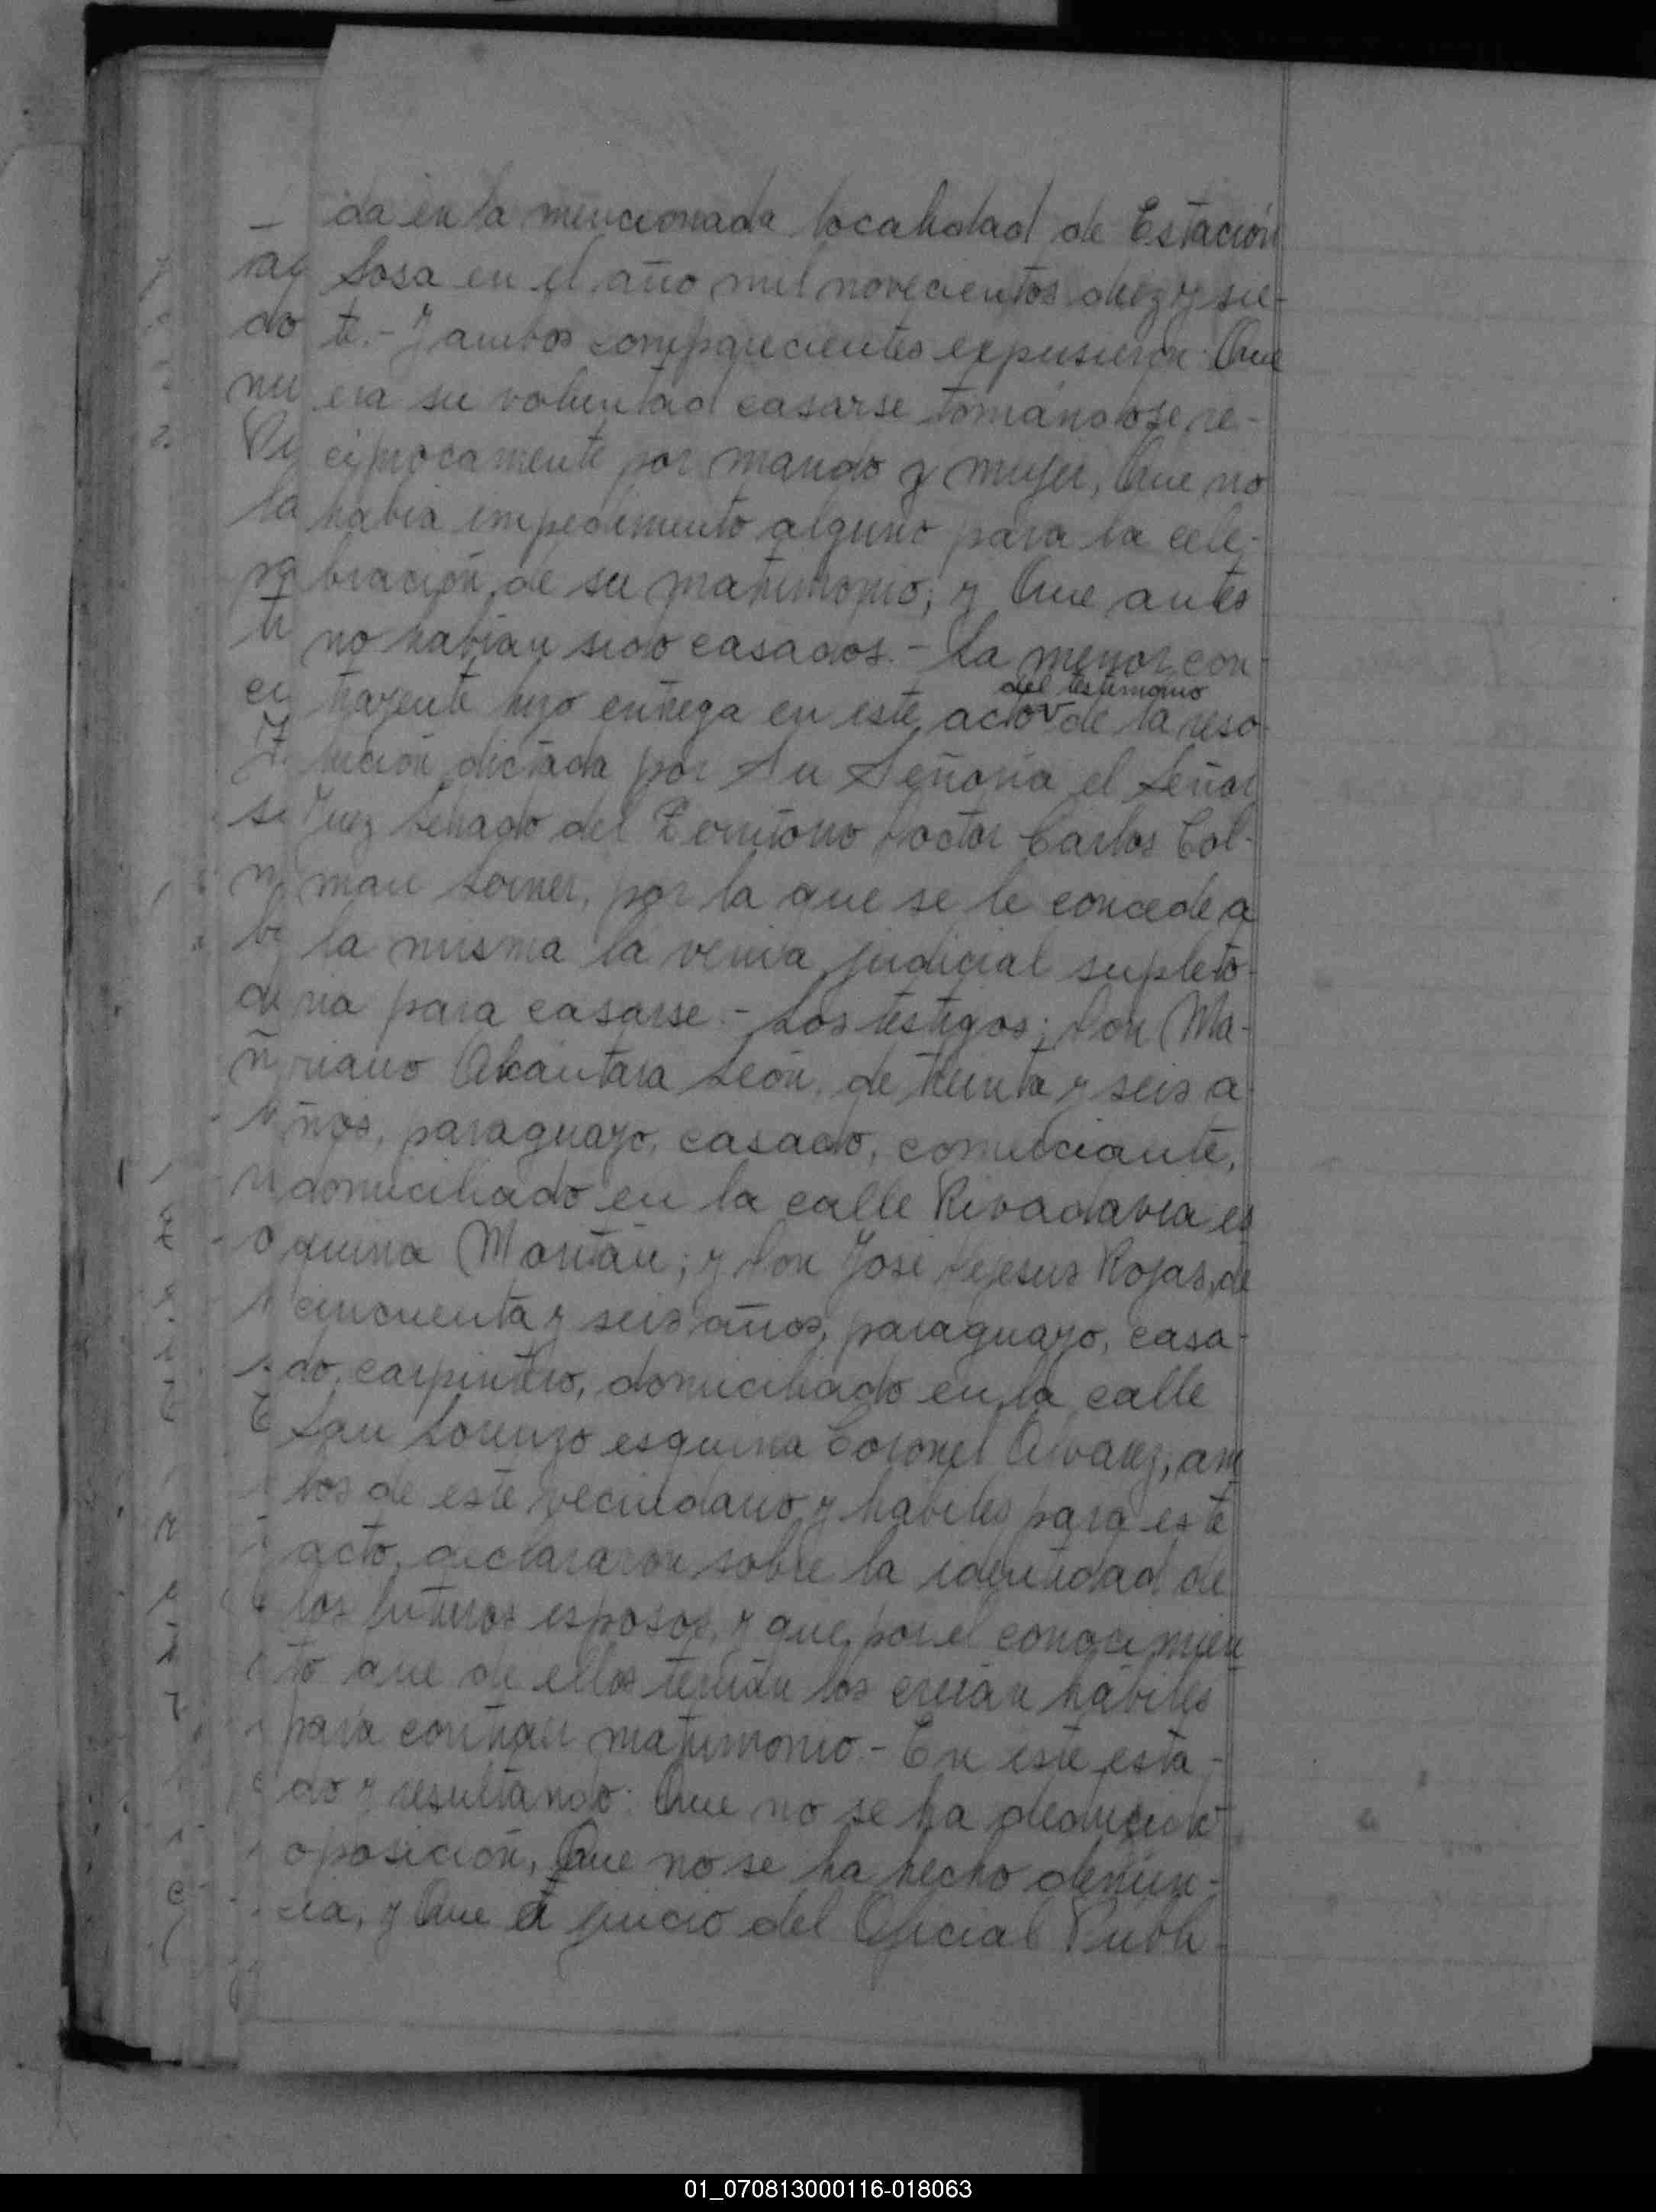 da en la mencionada localidad de Estación
Sosa en el año mil novecientos diez y sie-
te.- Y ambos comparecientes expusieron: Que
era su voluntad casarse tomándose re-
ciprocamente por marido y mujer, Que no
habia impedimento alguno para la cele-
bración de su matrimonio; y Que antes
no habian sido casados.- La menor con-
del testimonio
trayente hizo entrega en este acto de la reso-
lución dictada por Su Señoria el Señor
Juez Letrado del Territorio Doctor Carlos Col-
man Lerner, por la que se le concede a
la misma la venia judicial supleto-
ria para casarse.- Los testigos; Don Ma-
riano Alcántara León, de treinta y seis a-
ños, paraguayo, casado, comerciante,
domiciliado en la calle Rivadavia es
quina Moritán; y Don José Dejesus Rojas, de
cincuenta y seis años, paraguayo, casa-
do, carpintero, domiciliado en la calle
San Lorenzo esquina Coronel Alvarez, am
bos de este vecindario y habiles para este
acto, declararon sobre la identidad de
los futuros esposos, y que por el conocimien
to que de ellos tenian los creian hábiles
para contraer matrimonio.- En este esta-
do y resultando: Que no se ha deducido
oposición, Que no se ha hecho denun-
cia, y Que a juicio del Oficial Públi-
01_070813000116-018063